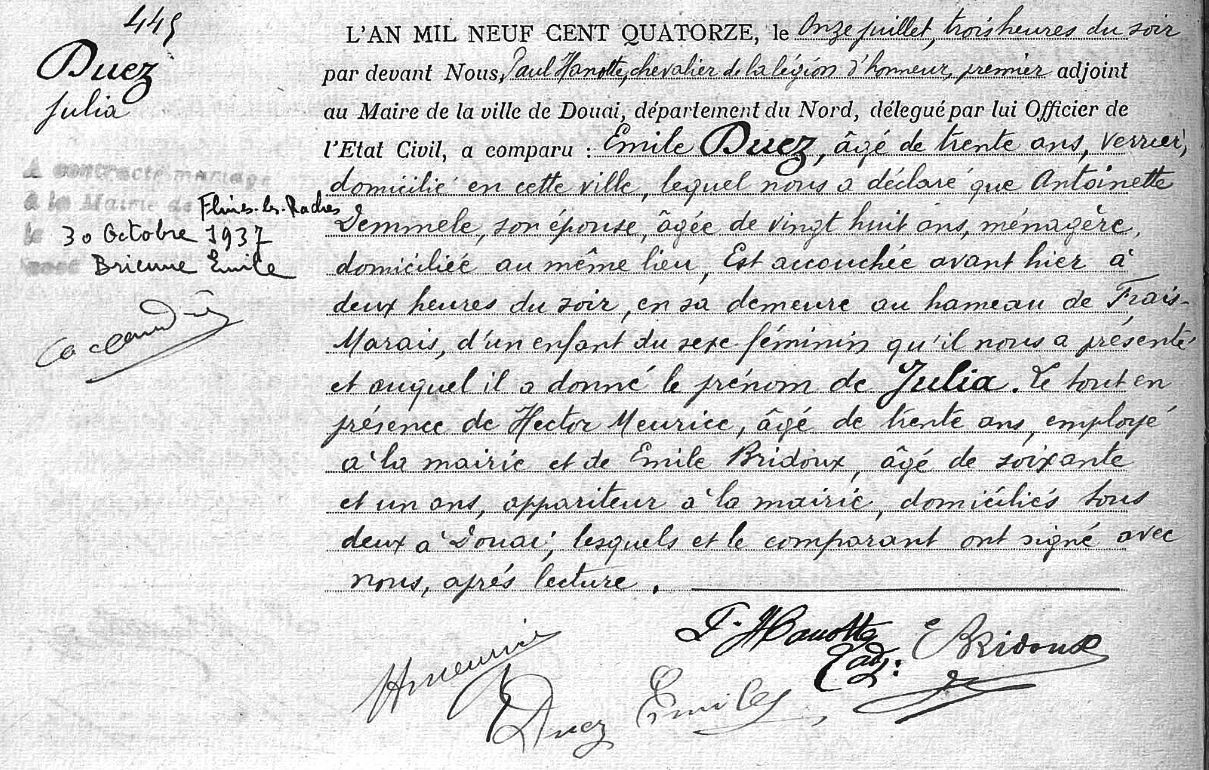 445
Duez
Julia
A contracté mariage
à la Mairie de Flines-les-Raches
le 30 Octobre 1937
avec Brienne Emile
L'AN MIL NEUF CENT QUATORZE, le Onze juillet, trois heures du soir
par devant Nous, Paul Hanotte, chevalier de la légion d'honneur, premier adjoint
au Maire de la ville de Douai, département du Nord, délégué par lui Officier de
l'Etat Civil, a comparu : Emile Duez, âgé de trente ans, verrier,
domicilié en cette ville, lequel nous a déclaré que Antoinette
Demmele, son épouse, âgée de vingt huit ans, ménagère,
domiciliée au même lieu, Est accouchée avant hier à
deux heures du soir, en sa demeure au hameau de Frais-
Marais, d'un enfant du sexe féminin qu'il nous a présenté
et auquel il a donné le prénom de Julia. Le tout en
présence de Hector Meurice, âgé de trente ans, employé
à la mairie et de Emile Bridoux, âgé de soixante
et un ans, appariteur à la mairie, domiciliés tous
deux à Douai, lesquels et le comparant ont signé avec
nous, après lecture.
P. Hanotte
adj. E Bridoux
H meurice
Duez Emile